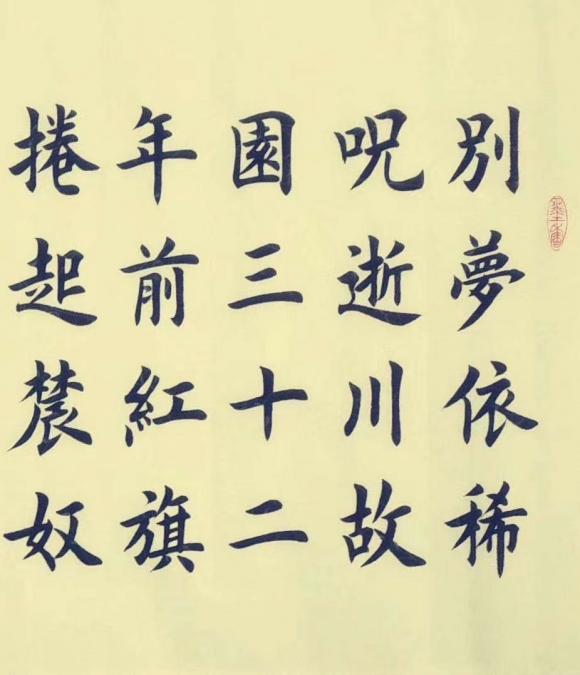 別夢依稀
呪逝川故
園三十二
年前紅旗
捲起辳奴